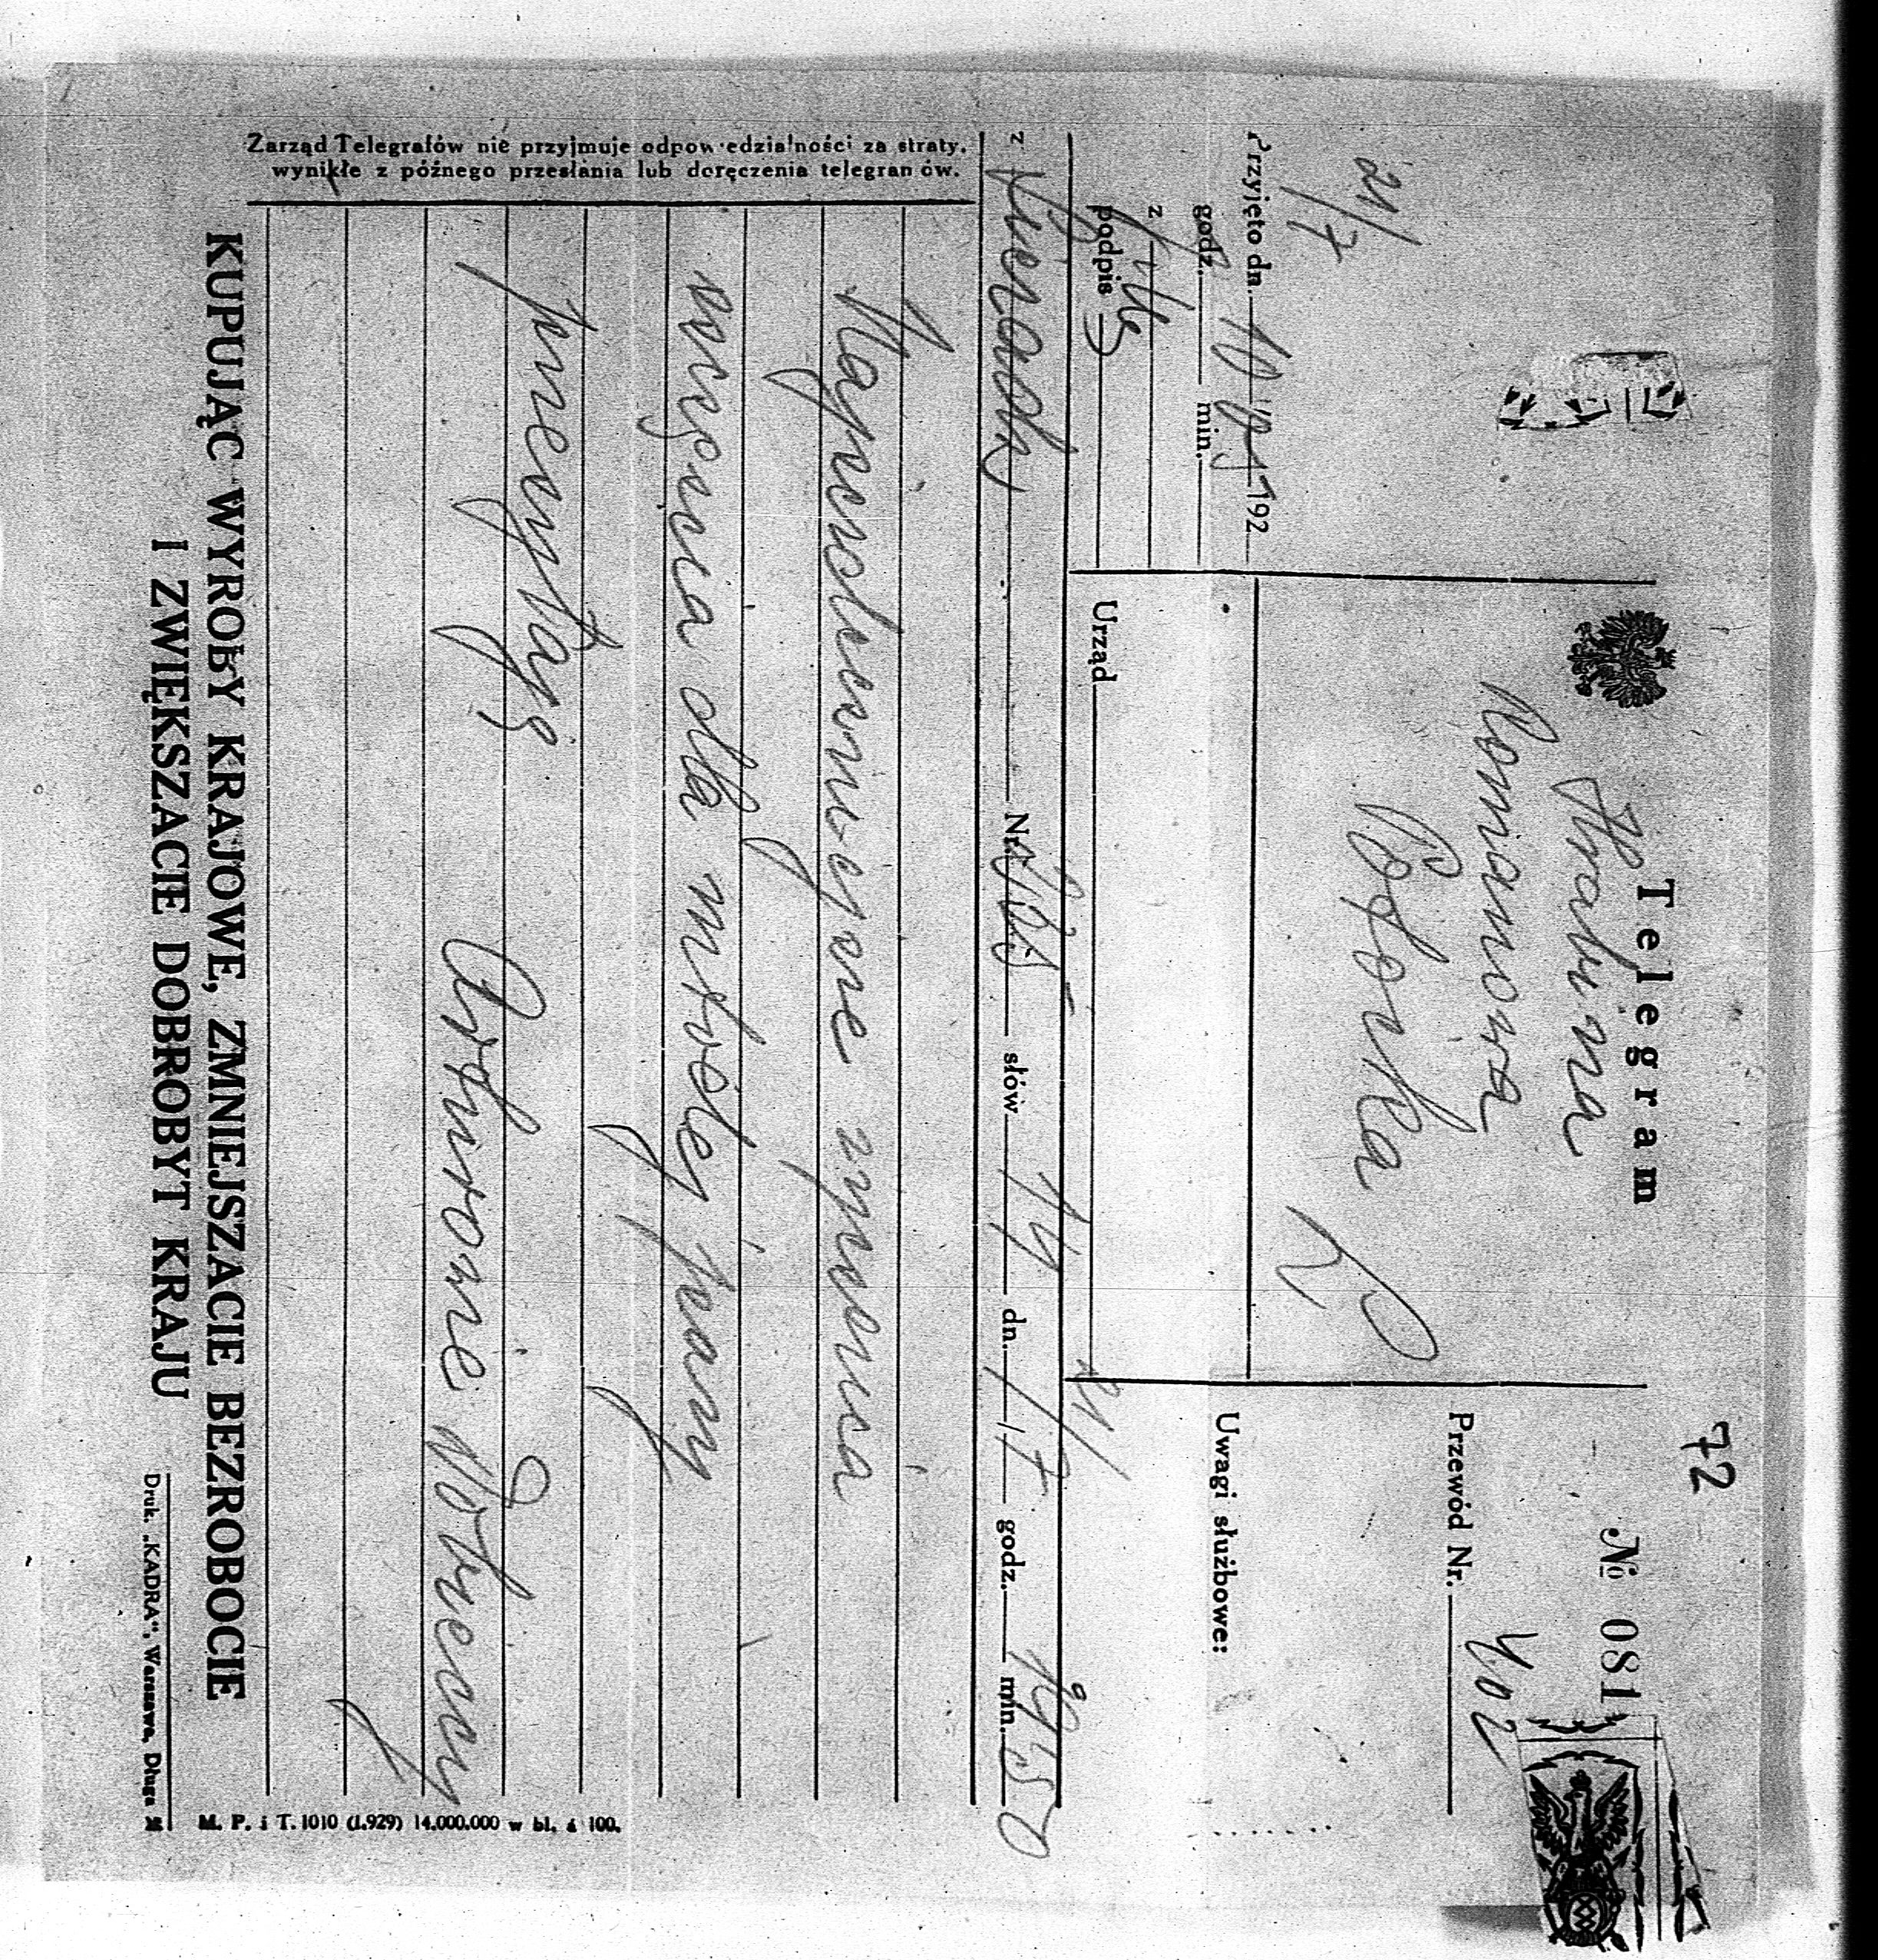 72
Telegram
№ 081
Hrabina
Romanowa
Potocka
R
Przewód Nr. 402
Uwagi służbowe:
21/7
Przyjęto dn. 192
godz. min.
z
podpis
Urząd
21/
z Nr. słów 14 dn. 1/7 godz. 19 min. 50
Najserdeczniejsze życzenia
szczęścia dla młodej pary
przesyłają
Ordynowie Zamoyscy
Zarząd Telegrafów nie przyjmuje odpowiedzialności za straty,
wynikłe z późnego przesłania lub doręczenia telegramów.
M. P. i T. 1010 (1.929) 14.000.000 w bl. á 100.
KUPUJĄC WYROBY KRAJOWE, ZMNIEJSZACIE BEZROBOCIE
I ZWIĘKSZACIE DOBROBYT KRAJU
Druk. „KADRA", Warszawa, Długa